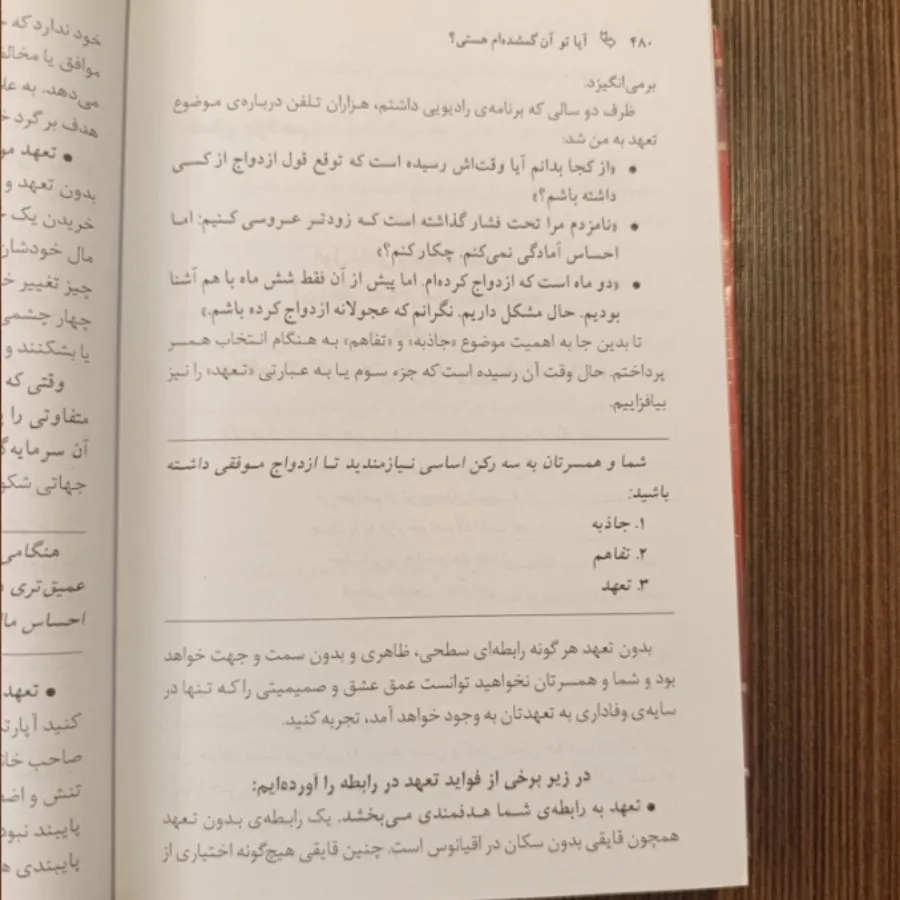 ۴۸۰ آیا تو آن گمشده‌ام هستی؟
برمی‌انگیزد.
ظرف دو سالی که برنامه‌ی رادیویی داشتم، هزاران تلفن درباره‌ی موضوع
تعهد به من شد:
• «از کجا بدانم آیا وقت‌اش رسیده است که توقع قول ازدواج از کسی
داشته باشم؟»
• «نامزدم مرا تحت فشار گذاشته است که زودتر عروسی کنیم؛ اما
احساس آمادگی نمی‌کنم. چکار کنم؟»
• «دو ماه است که ازدواج کرده‌ام. اما پیش از آن فقط شش ماه با هم آشنا
بودیم. حال مشکل داریم. نگرانم که عجولانه ازدواج کرده باشم.»
تا بدین جا به اهمیت موضوع «جاذبه» و «تفاهم» به هنگام انتخاب همسر
پرداختم. حال وقت آن رسیده است که جزء سوم یا به عبارتی «تعهد» را نیز
بیافزاییم.
شما و همسرتان به سه رکن اساسی نیازمندید تا ازدواج موفقی داشته
باشید:
۱. جاذبه
۲. تفاهم
۳. تعهد
بدون تعهد هر گونه رابطه‌ای سطحی، ظاهری و بدون سمت و جهت خواهد
بود و شما و همسرتان نخواهید توانست عمق عشق و صمیمیتی را که تنها در
سایه‌ی وفاداری به تعهدتان به وجود خواهد آمد، تجربه کنید.
در زیر برخی از فواید تعهد در رابطه را آورده‌ایم:
• تعهد به رابطه‌ی شما هدفمندی می‌بخشد. یک رابطه‌ی بدون تعهد
همچون قایقی بدون سکان در اقیانوس است. چنین قایقی هیچ‌گونه اختیاری از
خود ندارد که
موافق یا
می‌دهد. به
هدف بر گرد
• تعهد
بدون تعهد و
خریدن یک
مال خودشان
چیز تغییر
چهار چشمی
یا بشکنند و
وقتی که
متفاوتی را
آن
جهاتی
هنگامی
عمیق‌تری
احساس
• تعهد
کنید
صاحب
تنش و
پایبند
پایبندی